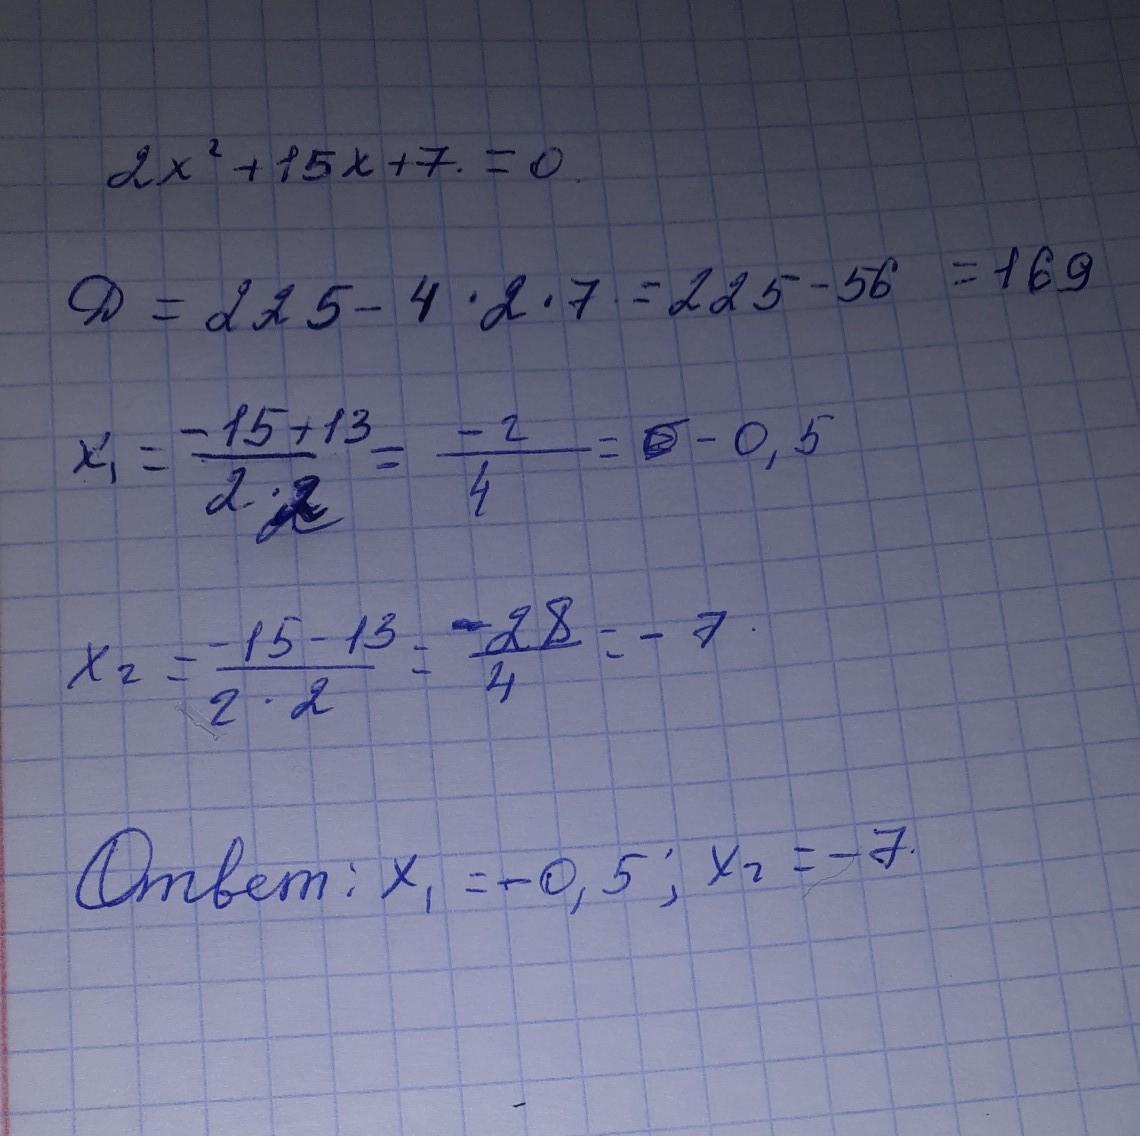 2x² + 15x + 7. = 0.
D = 225 - 4 · 2 · 7 = 225 - 56 = 169
x₁ = (-15 + 13)/(2 · 2) = (-2)/4 = - 0,5
x₂ = (-15 - 13)/(2 · 2) = (-28)/4 = - 7.
Ответ: x₁ = -0,5; x₂ = -7.